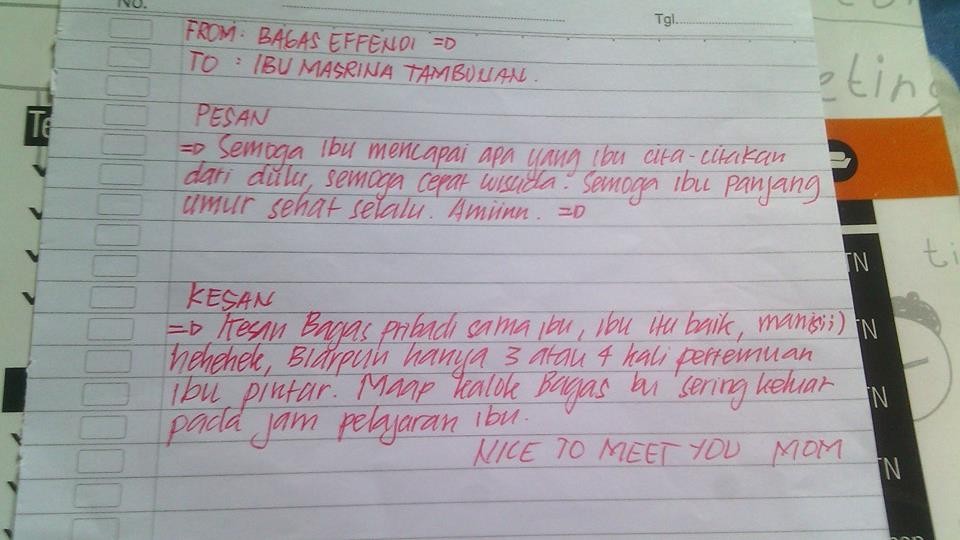 No.
Tgl.
FROM : BAGAS EFFENDI =D
TO : IBU MASRINA TAMBUNAN.
PESAN
=D Semoga ibu mencapai apa yang ibu cita-citakan
dari dulu, semoga cepat wisuda. Semoga ibu panjang
umur sehat selalu. Amiinn. =D
KESAN
=D Kesan Bagas pribadi sama ibu, ibu itu baik, manis(ii)
hehehek, Biarpun hanya 3 atau 4 kali pertemuan
ibu pintar. Maap kalok Bagas bu sering keluar
pada jam pelajaran ibu.
NICE TO MEET YOU MOM
eting
Te
ti
TN
TN
TN
TN